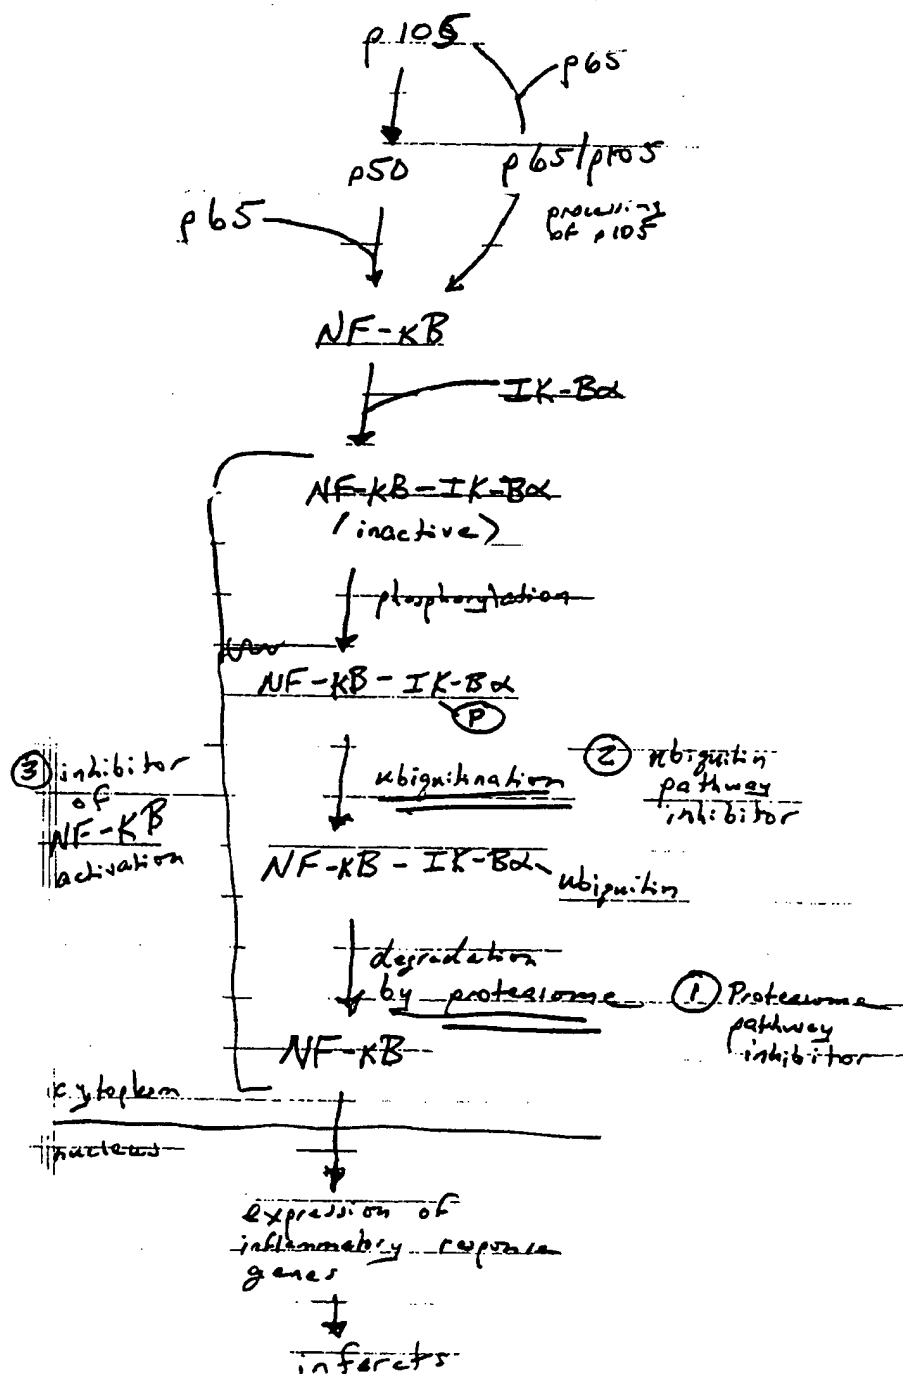 p105
p65
p50
p65/p105
p65
processing
of p105
NF-κB
IK-Bα
NF-KB-IK-Bα
(inactive)
phosphorylation
NF-KB-IK-Bα
P
③ inhibitor
of
NF-KB
activation
ubiquitination
② ubiquitin
pathway
inhibitor
NF-KB-IK-Bα
ubiquitin
degradation
by proteasome
① Proteasome
pathway
inhibitor
NF-KB
cytoplasm
nucleus
expression of
inflammatory response
genes
infarcts